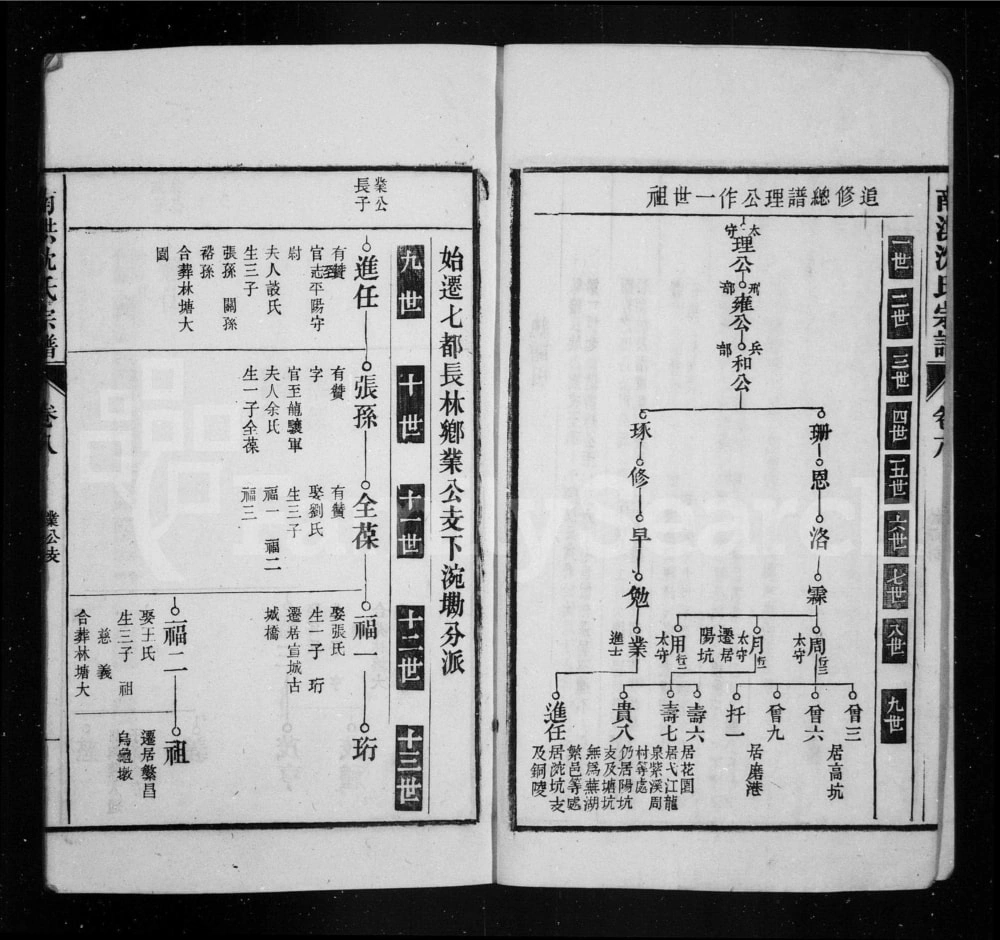 追修總譜理公作一世祖
一世
二世
三世
四世
五世
六世
七世
八世
九世
太守
理公
刑部
雍公
兵部
和公
珊
恩
洛
霖
琢
修
早
勉
周 行三
太守
月 行一
太守
遷居陽坑
用 行二
太守
業
進士
曾三
曾六
居高坑
曾九
扦一
居磨港
壽六
壽七
居花園
居弋江龍
泉紫溪周
村等處
貴八
仍居陽坑
支及塘坑
無為蕪湖
繁邑等處
進任
居涴坑支
及銅陵
南洪沈氏宗譜
卷八
始遷七都長林鄉業公支下涴墈分派
九世
十世
十一世
十二世
十三世
業公
長子
進任
有贊
官志至平陽守
尉
夫人談氏
生三子
張孫 關孫
裕孫
合葬林塘大
園
張孫
有贊
字
官至龍驤軍
夫人余氏
生一子全葆
全葆
有贊
娶劉氏
生三子
福一 福二
福三
福一
娶張氏
生一子 珩
遷居宣城古
城橋
珩
福二
娶王氏
生三子 祖
慈 義
合葬林塘大
祖
遷居繁昌
烏龜墩
南洪沈氏宗譜
卷八
業公支
FamilySearch